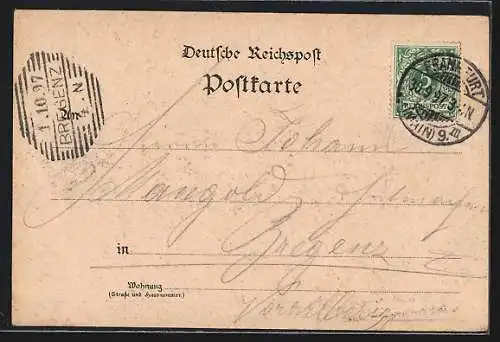 Deutsche Reichspost
Postkarte
1.10.97
BREGENZ
N
FRANKFURT
(MAIN) 9.
Herrn Johann
Mangold
in Bregenz
Wohnung
(Straße und Hausnummer)
Vorarlberg